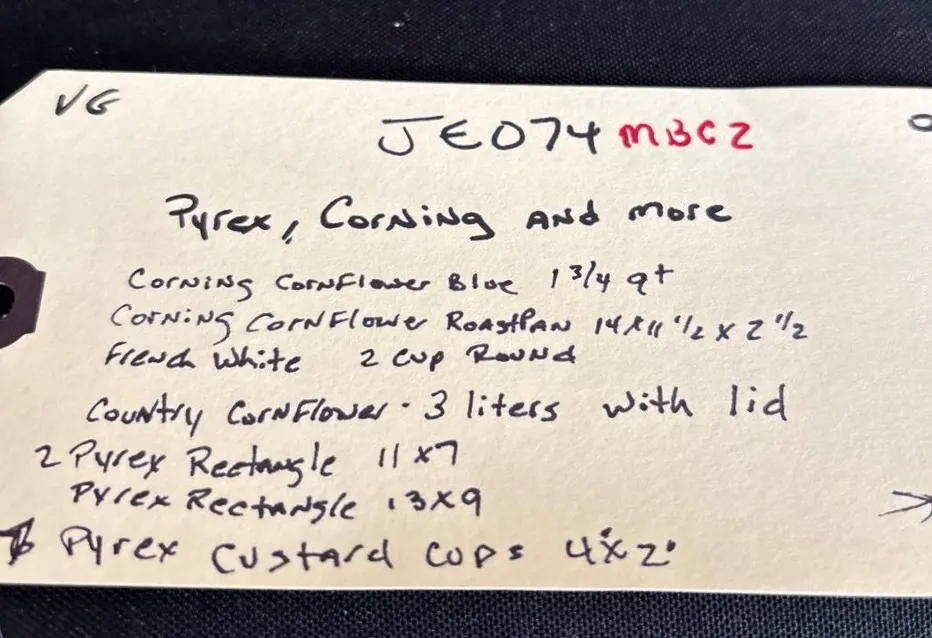 VG
JE074 MBC2
Pyrex, Corning and more
Corning Cornflower Blue 1 3/4 qt
Corning Cornflower Roastpan 14x11 1/2 x 2 1/2
French White 2 cup Round
Country Cornflower · 3 liters with lid
2 Pyrex Rectangle 11x7
Pyrex Rectangle 13x9
Pyrex custard cups 4"x2"